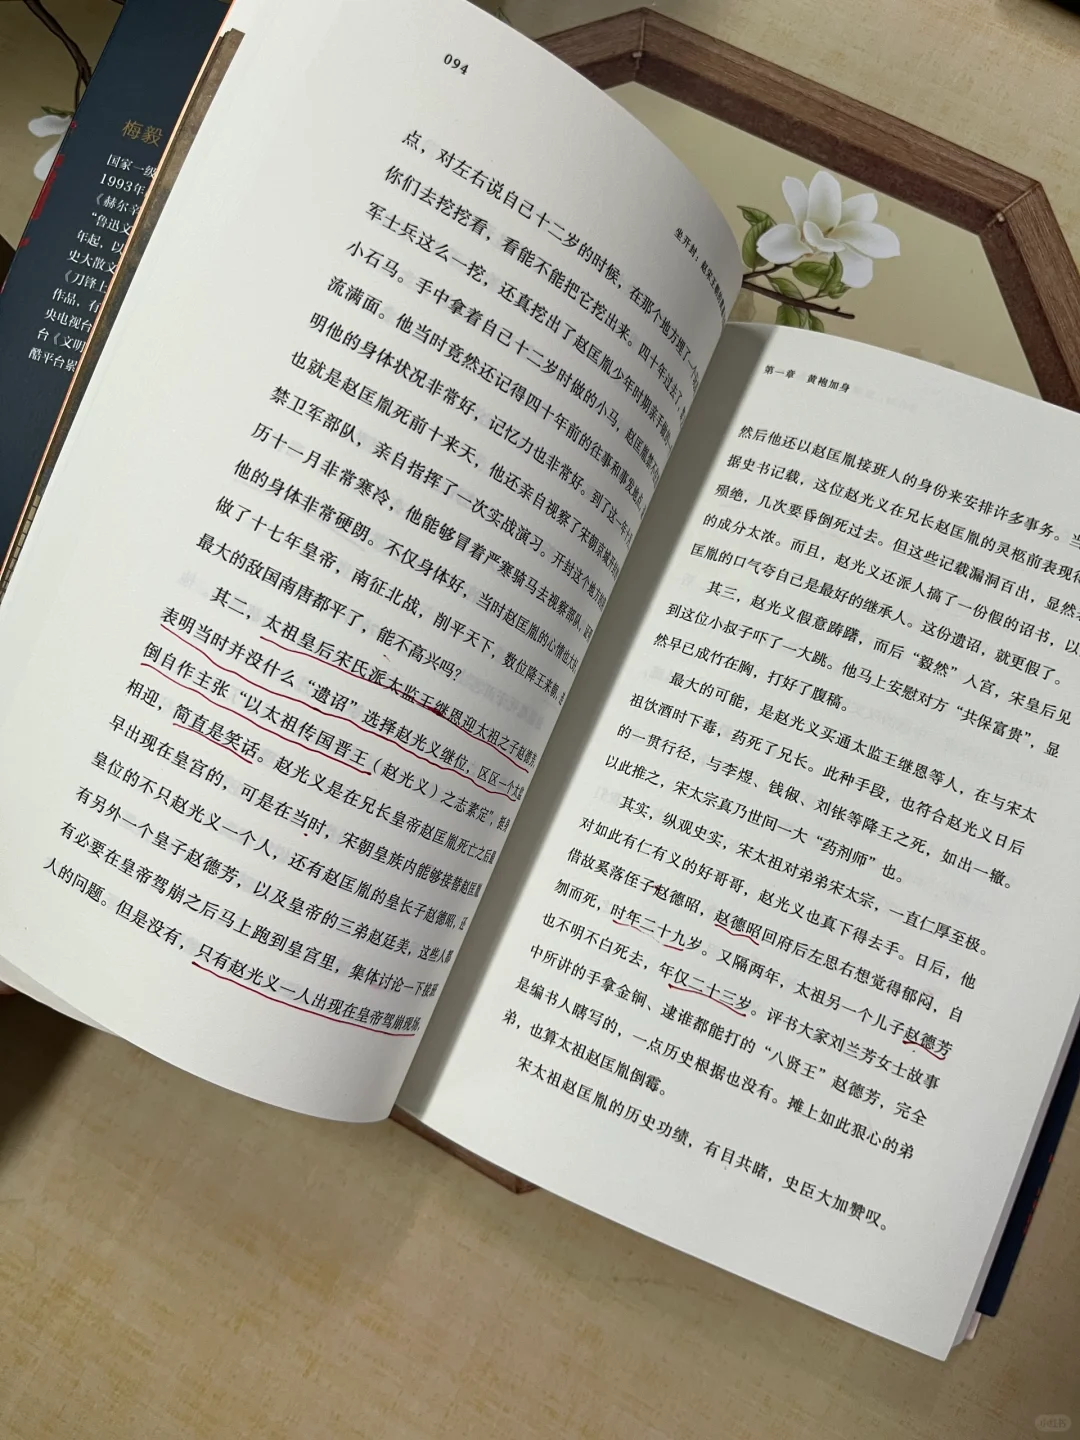 梅毅
国家一级
1993年
《赫尔辛
“鲁迅文
年起，以
史大散文
《刀锋上
作品，有
央电视台
台《文明
酷平台累
094
坐开封：赵宋王朝
点，对左右说自己十二岁的时候，在那个地方埋了一个
你们去挖挖看，看能不能把它挖出来。四十年过去了，
军士兵这么一挖，还真挖出了赵匡胤少年时期亲手
小石马。手中拿着自己十二岁时做的小马，赵匡胤
流满面。他当时竟然还记得四十年前的往事和事发地点，
明他的身体状况非常好，记忆力也非常好。到了这一年
也就是赵匡胤死前十来天，他还亲自视察了宋朝京城开封
禁卫军部队，亲自指挥了一次实战演习。开封这个地方
历十一月非常寒冷，他能够冒着严寒骑马去视察部队，证明
他的身体非常硬朗。不仅身体好，当时赵匡胤的心情也大好，
做了十七年皇帝，南征北战，削平天下，数位降王来朝，连
最大的敌国南唐都平了，能不高兴吗？
其二，太祖皇后宋氏派太监王继恩迎太祖之子赵德芳，
表明当时并没什么“遗诏”选择赵光义继位，区区一个太监
倒自作主张“以太祖传国晋王（赵光义）之志素定”，挺身
相迎，简直是笑话。赵光义是在兄长皇帝赵匡胤死亡之后最
早出现在皇宫的，可是在当时，宋朝皇族内能够接替赵匡胤
皇位的不只赵光义一个人，还有赵匡胤的皇长子赵德昭，还
有另外一个皇子赵德芳，以及皇帝的三弟赵廷美，这些人都
有必要在皇帝驾崩之后马上跑到皇宫里，集体讨论一下接班
人的问题。但是没有，只有赵光义一人出现在皇帝驾崩现场，
第一章 黄袍加身
然后他还以赵匡胤接班人的身份来安排许多事务。当
据史书记载，这位赵光义在兄长赵匡胤的灵柩前表现得
殒绝，几次要昏倒死过去。但这些记载漏洞百出，显然
的成分太浓。而且，赵光义还派人搞了一份假的诏书，以
匡胤的口气夸自己是最好的继承人。这份遗诏，就更假了。
其三，赵光义假意踌躇，而后“毅然”入宫，宋皇后见
到这位小叔子吓了一大跳。他马上安慰对方“共保富贵”，显
然早已成竹在胸，打好了腹稿。
最大的可能，是赵光义买通太监王继恩等人，在与宋太
祖饮酒时下毒，药死了兄长。此种手段，也符合赵光义日后
的一贯行径，与李煜、钱俶、刘𬬮等降王之死，如出一辙。
以此推之，宋太宗真乃世间一大“药剂师”也。
其实，纵观史实，宋太祖对弟弟宋太宗，一直仁厚至极。
对如此有仁有义的好哥哥，赵光义也真下得去手。日后，他
借故奚落侄子赵德昭，赵德昭回府后左思右想觉得郁闷，自
刎而死，时年二十九岁。又隔两年，太祖另一个儿子赵德芳
也不明不白死去，年仅二十三岁。评书大家刘兰芳女士故事
中所讲的手拿金锏、逮谁都能打的“八贤王”赵德芳，完全
是编书人瞎写的，一点历史根据也没有。摊上如此狠心的弟
弟，也算太祖赵匡胤倒霉。
宋太祖赵匡胤的历史功绩，有目共睹，史臣大加赞叹。
小红书